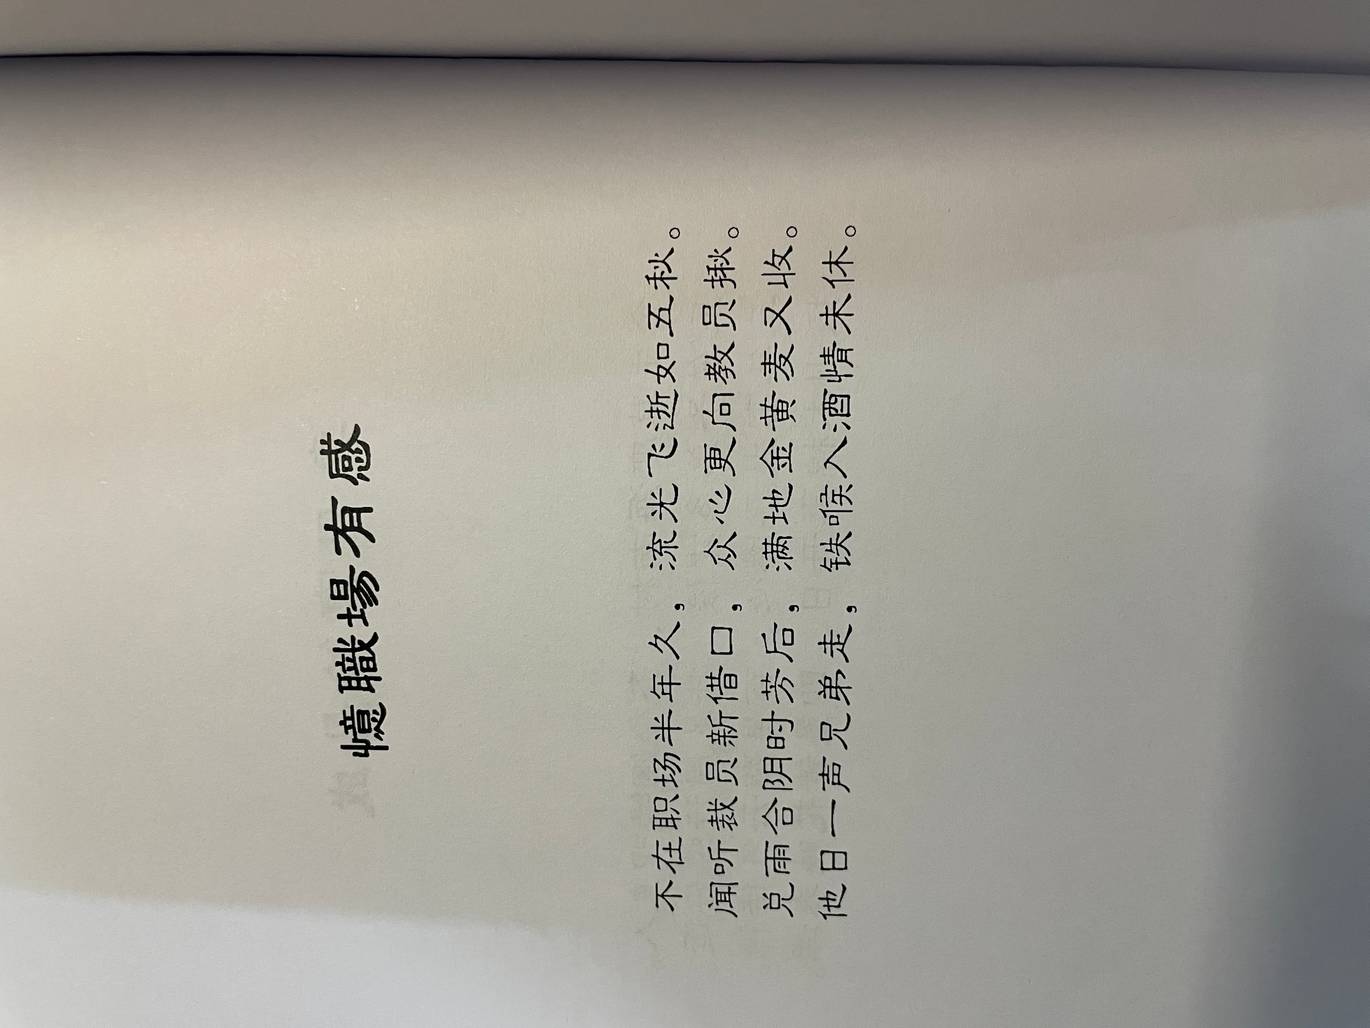 憶職場有感
不在职场半年久，流光飞逝如五秋。
闻听裁员新借口，众心更向教员揪。
兑雨合阴时芳后，满地金黄麦又收。
他日一声兄弟走，铁喉入酒情未休。